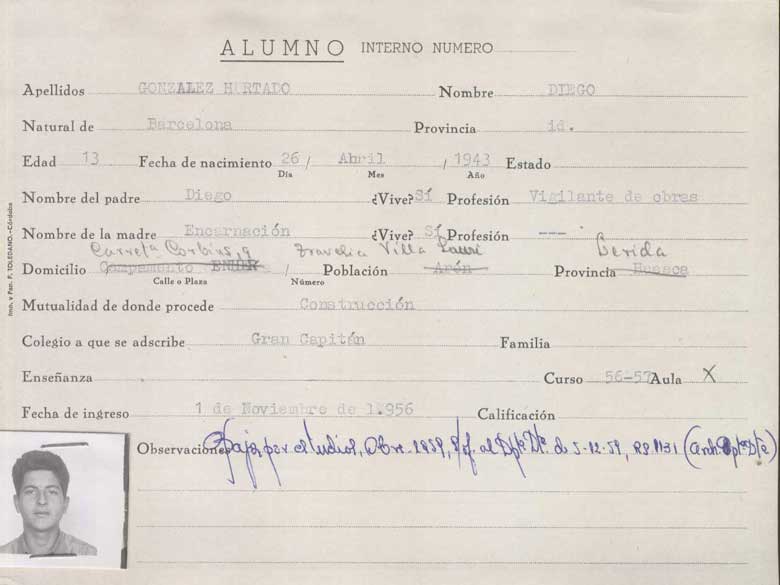 ALUMNO INTERNO NUMERO
Apellidos GONZALEZ HURTADO Nombre DIEGO
Natural de Barcelona Provincia id.
Edad 13 Fecha de nacimiento 26 / Abril / 1943 Estado
Día Mes Año
Nombre del padre Diego ¿Vive? Sí Profesión Vigilante de obras
Nombre de la madre Encarnación ¿Vive? Sí Profesión ---.
Carreta Corbins, 9 Villa Lerida
Domicilio Campamento ENHER / Población Arén Provincia Huesca
Calle o Plaza Número
Mutualidad de donde procede Construcción
Colegio a que se adscribe Gran Capitán Familia
Enseñanza Curso 56-57 Aula X
Fecha de ingreso 1 de Noviembre de 1.956 Calificación
Observaciones por estudios, 1959, al de 5-12-59,
Imp. y Pap. F. TOLEDANO.-Córdoba